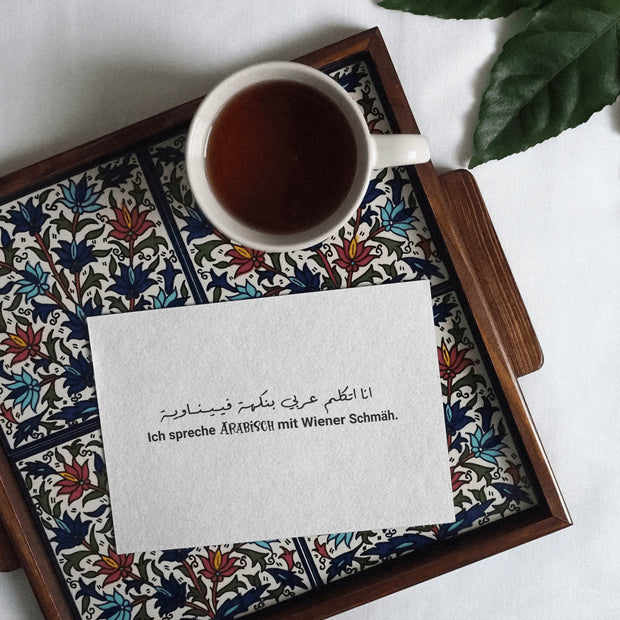 انا اتكلم عربي بنكهة فييناوية
Ich spreche ARABiSCH mit Wiener Schmäh.